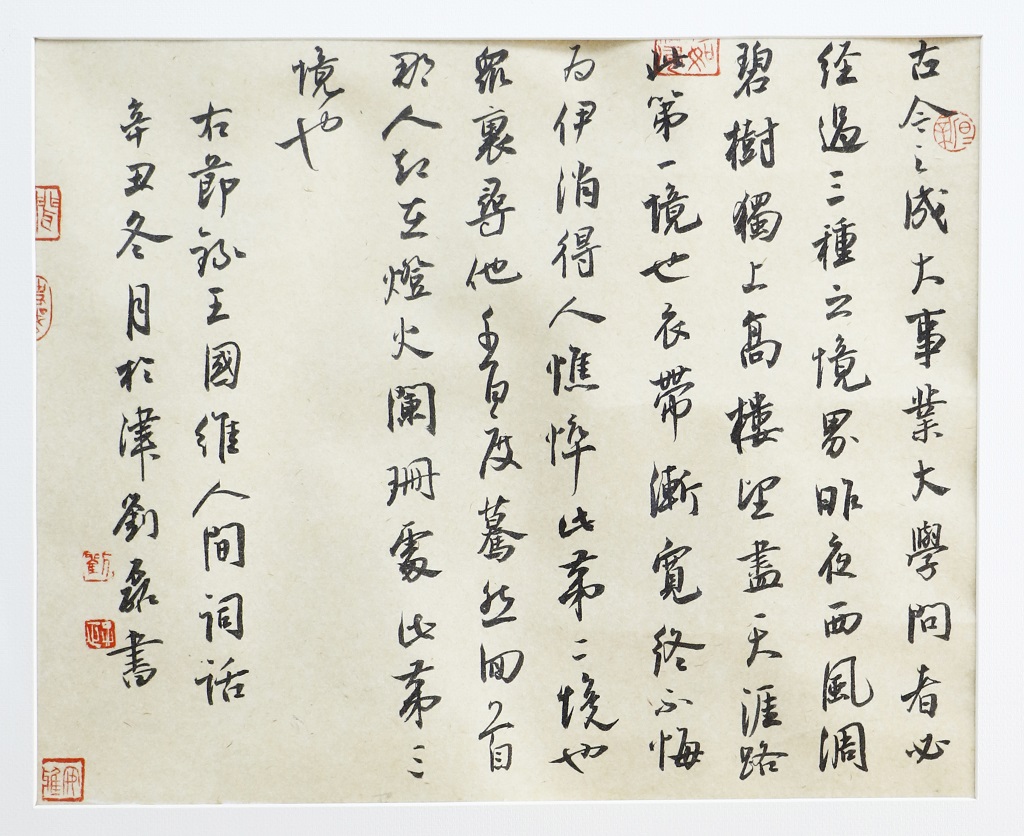 古今之成大事業大學問者必
経過三種之境界昨夜西風凋
碧樹獨上高樓望盡天涯路
此第一境也衣帶漸寬終不悔
為伊消得人憔悴此第二境也
眾裏尋他千百度驀然回首
那人却在燈火闌珊處此第三
境也
右節録王國維人間词话
辛丑冬月於津劉磊書